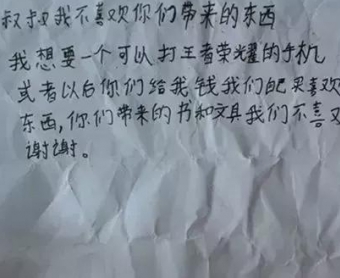 叔叔我不喜欢你们带来的东西
我想要一个可以打王者荣耀的手机
或者以后你们给我钱我们自己买喜欢
东西，你们带来的书和文具我们不喜欢
谢谢。